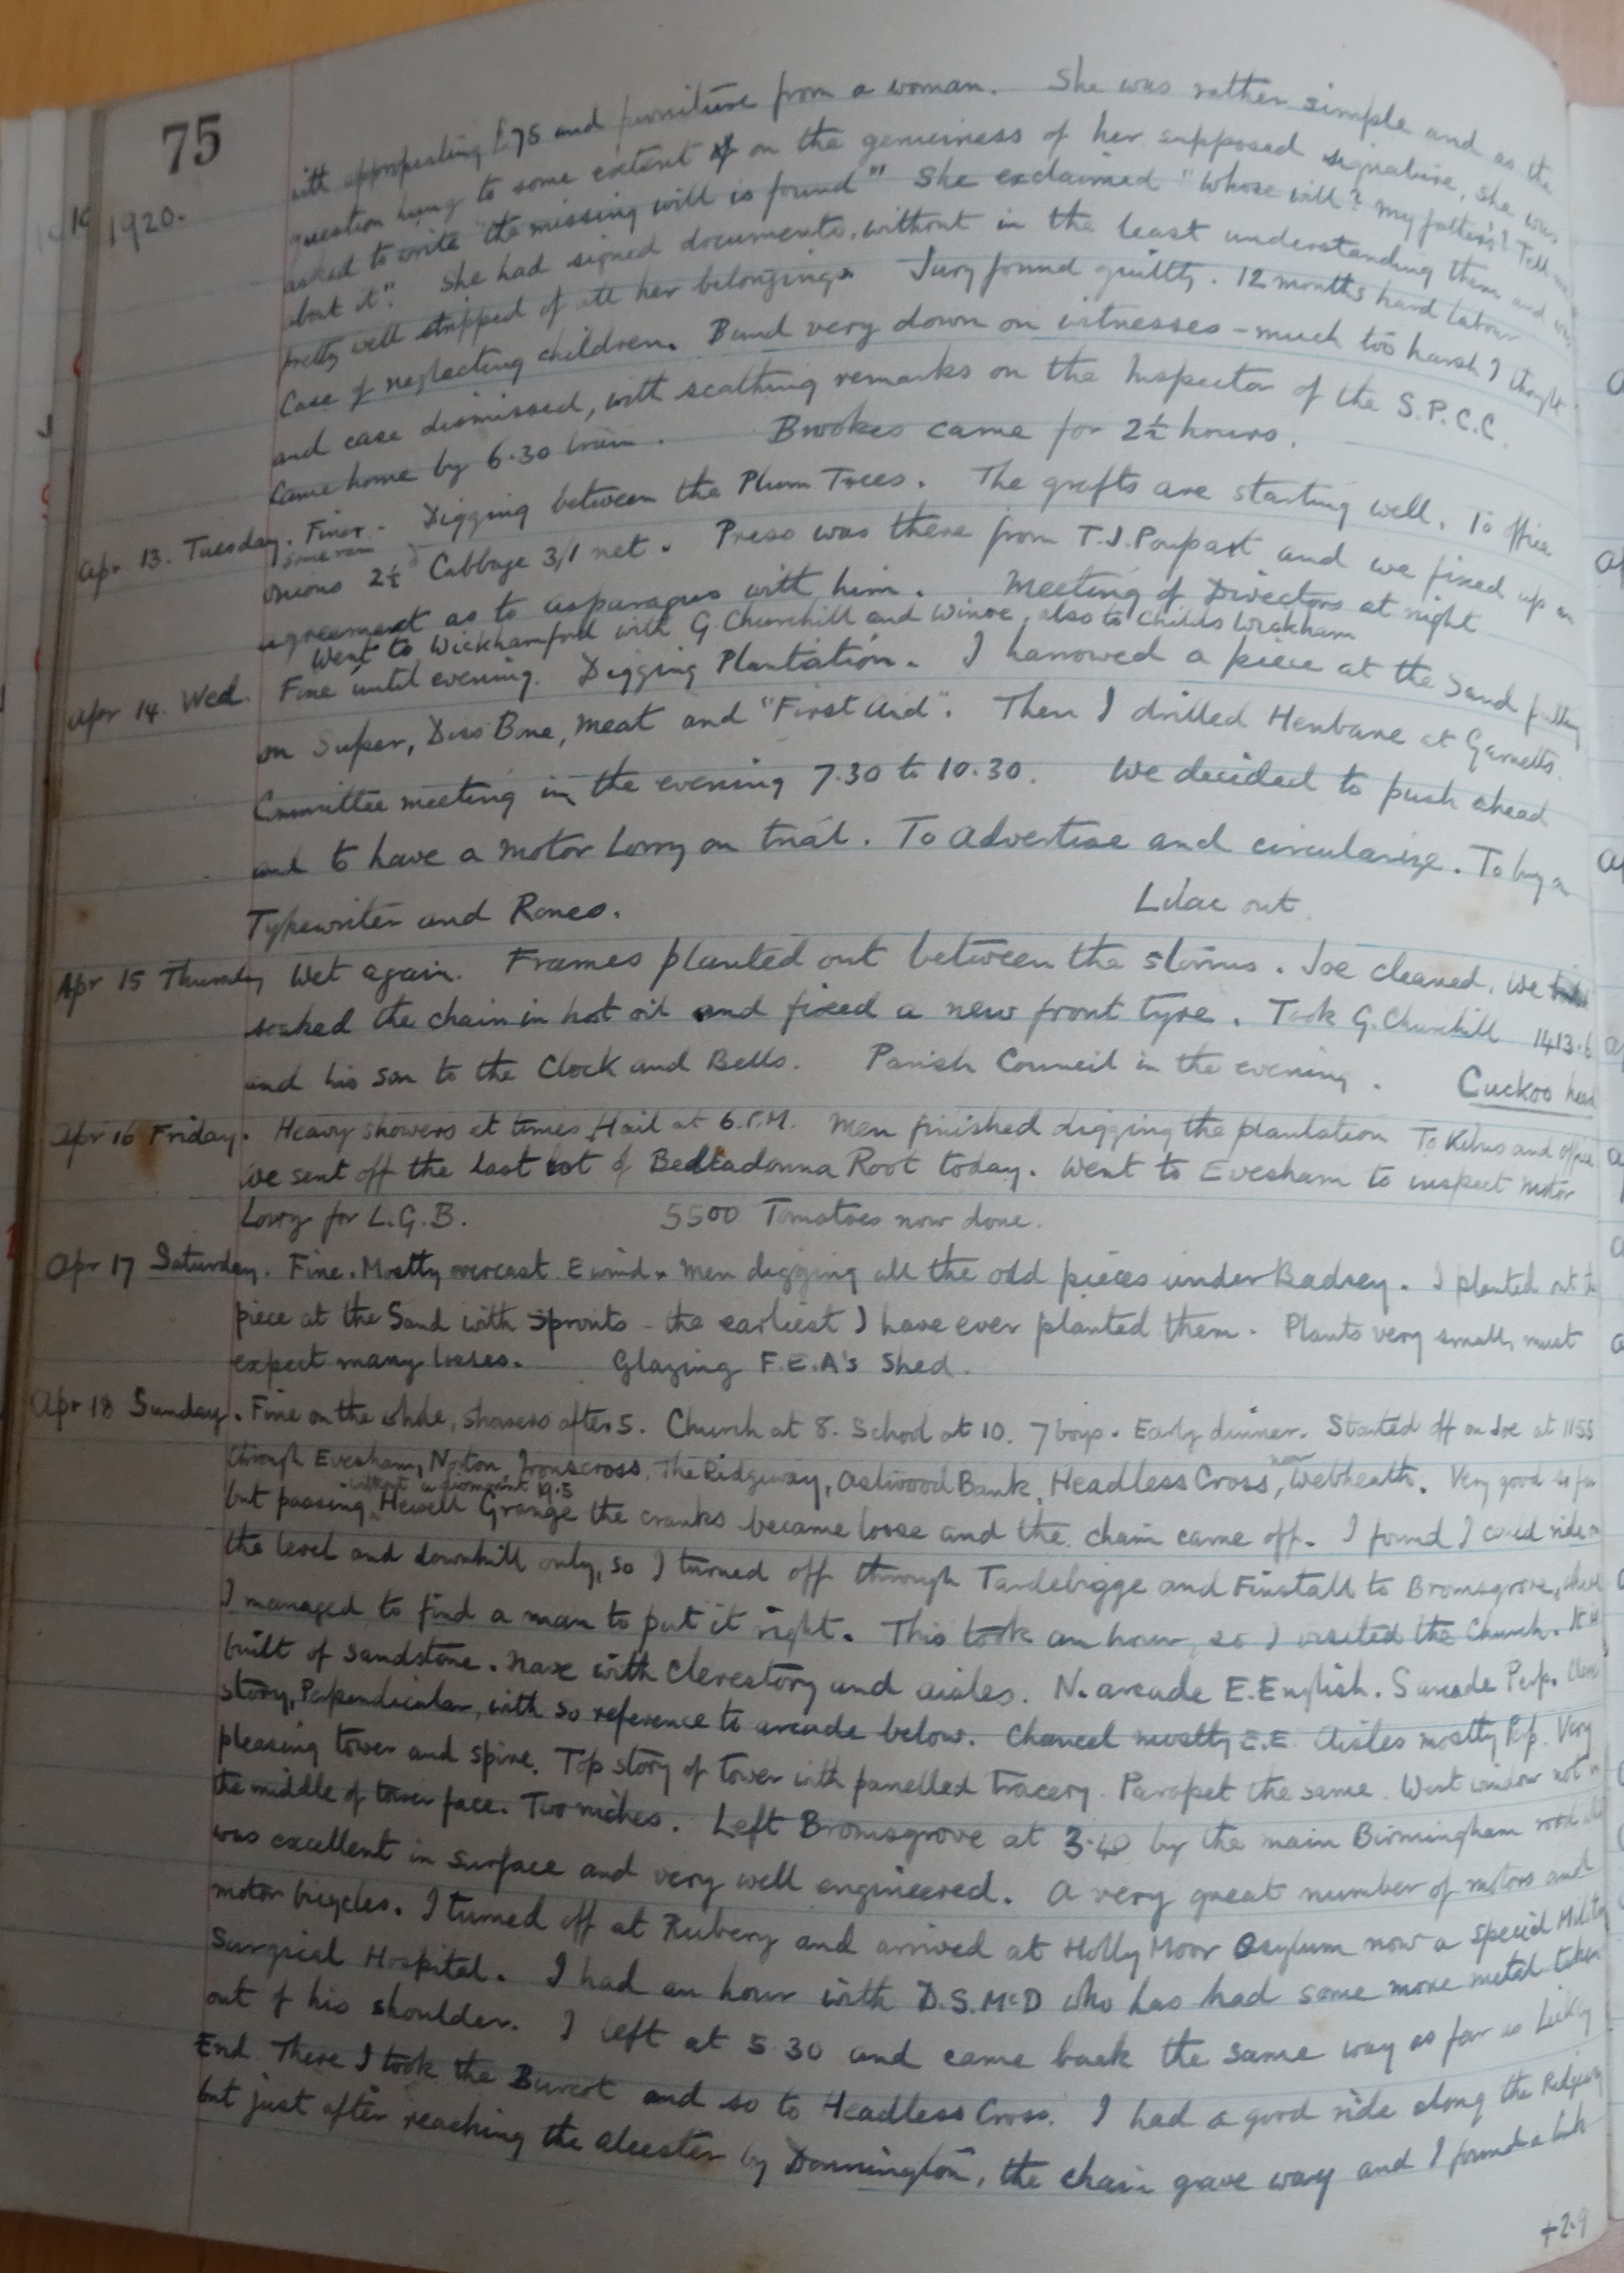 75
1920.
with appropriating £75 and furniture from a woman. She was rather simple and as the
question hung to some extent on the genuiness of her supposed signature, she was
asked to write "the missing will is found" She exclaimed "Whose will? my father's? Tell me
about it". She had signed documents, without in the least understanding them and was
pretty well stripped of all her belongings. Jury found guilty. 12 months hard labour
Case of neglecting children. Bund very down on witnesses - much too harsh I thought
and case dismissed, with scathing remarks on the Inspector of the S.P.C.C.
Came home by 6.30 train. Brookes came for 2½ hours.
Apr 13. Tuesday. Finer. Digging between the Plum Trees. The grafts are starting well. To office
some rain
onions 2½ Cabbage 3/1 net. Preso was there from T.J. Poupart and we fixed up an
agreement as to asparagus with him. Meeting of Directors at night
Went to Wickhamford with G. Churchill and Winve, also to Childs Wickham
Apr 14. Wed. Fine until evening. Digging Plantation. I harrowed a piece at the Sand putting
on Super, Diss Bone, meat and "First Aid". Then I drilled Henbane at Garnetts.
Committee meeting in the evening 7.30 to 10.30. We decided to push ahead
and to have a motor Lorry on trial. To Advertise and circularize. To buy a
Typewriter and Roneo. Lilac out
Apr 15 Thursday Wet again. Frames planted out between the storms. Joe cleaned. We
soaked the chain in hot oil and fixed a new front tyre. Took G. Churchill 1413.6
and his son to the Clock and Bells. Parish Council in the evening. Cuckoo heard
Apr 16 Friday. Heavy showers at times Hail at 6.P.M. Men finished digging the plantation To Kilns and office
We sent off the last lot of Belladonna Root today. Went to Evesham to inspect motor
Lorry for L.G.B. 5500 Tomatoes now done.
Apr 17 Saturday. Fine. Mostly overcast E wind. Men digging all the odd pieces under Badsey. I planted out the
piece at the Sand with sprouts - the earliest I have ever planted them. Plants very small, must
expect many losses. Glazing F.E.A's Shed.
Apr 18 Sunday. Fine on the whole, showers after 5. Church at 8. School at 10. 7 boys. Early dinner. Started off on Joe at 1155
through Evesham, Norton, Ironscross, The Ridgeway, Astwood Bank, Headless Cross, near Webheath. Very good so far
without a dismount 19.5
but passing Hewell Grange the cranks became loose and the chain came off. I found I could ride on
the level and downhill only, so I turned off through Tardebigge and Finstall to Bromsgrove, where
I managed to find a man to put it right. This took an hour, so I visited the Church. It is
built of sandstone. Nave with Clerestory and aisles. N. arcade E.English. S arcade Perp. Clere
story, Perpendicular, with so reference to arcade below. Chancel mostly E.E. Aisles mostly Pp. Very
pleasing tower and spire. Top story of tower with panelled tracery. Parapet the same. West window not in
the middle of tower face. Two niches. Left Bromsgrove at 3.40 by the main Birmingham road
was excellent in surface and very well engineered. A very great number of motors and
motor bicycles. I turned off at Rubery and arrived at Holly Moor Asylum now a special Military
Surgical Hospital. I had an hour with D.S.McD who has had some more metal taken
out of his shoulder. I left at 5.30 and came back the same way as far as Lickey
End. There I took the Burcot and so to Headless Cross. I had a good ride along the Ridgeway
but just after reaching the Alcester by Dunnington, the chain gave way and I found a link
+2.9